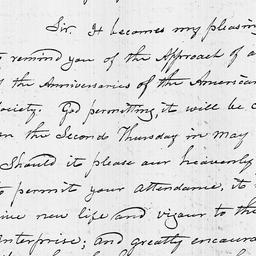 Sir. It becomes my pleasing
remind you of the Approach of a
the Anniversaries of the American
ociety. God permitting, it will be
the Second Thursday in May
Should it please our heavenly
to permit your attendance, it
new life and vigour to the
Enterprise; and greatly encoura